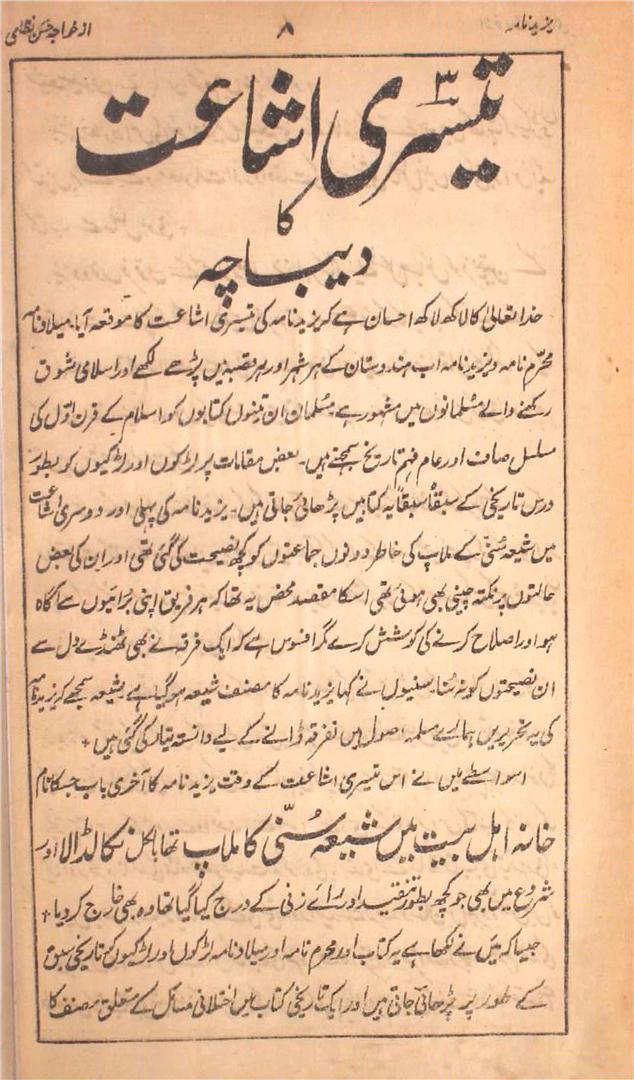 یزیدنامہ
۸
از خواجہ حسن نظامی
تیسری ۳ اشاعت
کا
دیباچہ
خدا تعالیٰ کا لاکھ لاکھ احسان ہے کہ یزید نامہ کی تیسری اشاعت کا موقعہ آیا۔ میلاد نامہ
محرم نامہ و یزید نامہ اب ہندوستان کے ہر شہر اور ہر قصبہ میں پڑھے لکھے اور اسلامی شوق
رکھنے والے مسلمانوں میں مشہور ہے۔ مسلمان ان تینوں کتابوں کو اسلام کے قرن اوّل کی
مسلسل صاف اور عام فہم تاریخ سمجھتے ہیں۔ بعض مقامات پر لڑکوں اور لڑکیوں کو بطور
درس تاریخی کے سبقاً سبقاً یہ کتابیں پڑھائی جاتی ہیں۔ یزید نامہ کی پہلی اور دوسری اشاعت
میں شیعہ سُنّی کے ملاپ کی خاطر دونوں جماعتوں کو کچھ نصیحت کی گئی تھی اور ان کی بعض
حالتوں پر نکتہ چینی بھی ہوئی تھی اسکا مقصد محض یہ تھا کہ ہر فریق اپنی برائیوں سے آگاہ
ہو اور اصلاح کرنے کی کوشش کرے مگر افسوس ہے کہ ایک فرقہ نے بھی ٹھنڈے دل سے
ان نصیحتوں کو نہ سُنا۔ سنیوں نے کہا یزید نامہ کا مصنف شیعہ ہو گیا ہے۔ شیعہ سمجھے کہ یزید نامہ
کی یہ تحریریں ہمارے مسلمہ اصول میں تفرقہ ڈالنے کے لیے دانستہ تیار کی گئی ہیں +
اسواسطے میں نے اس تیسری اشاعت کے وقت یزید نامہ کا آخری باب جسکا نام
خانہ اہل بیت میں شیعہ سُنّی کا ملاپ تھا بالکل نکالڈالا اور
شروع میں بھی جو کچھ بطور تنقید اور رائے زنی کے درج کیا گیا تھا وہ بھی خارج کر دیا +
جیسا کہ میں نے لکھا ہے یہ کتاب اور محرم نامہ اور میلاد نامہ لڑکوں اور لڑکیوں کو تاریخی سبق
کے طور پر پڑھائی جاتی ہیں اور ایک تاریخی کتاب میں اختلافی مسائل کے متعلق مصنف کا